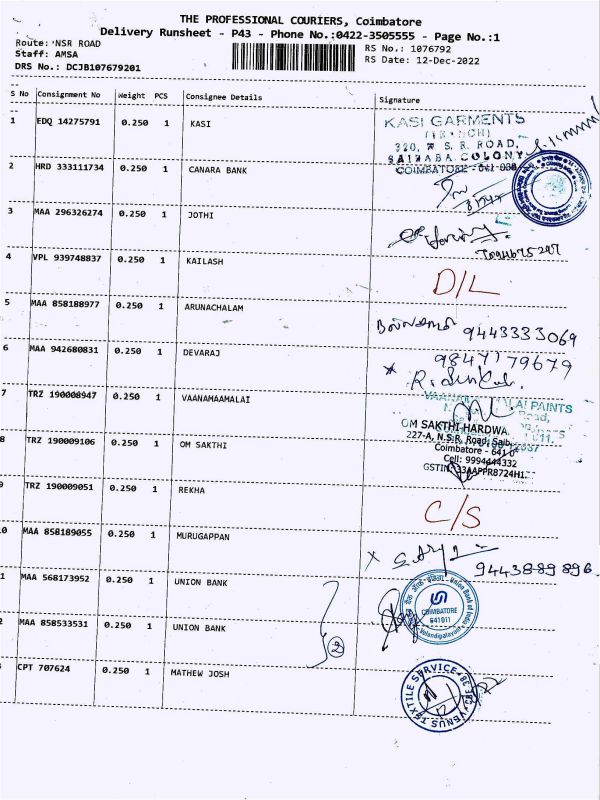 THE PROFESSIONAL COURIERS, Coimbatore
Delivery Runsheet - P43 - Phone No.:0422-3505555 - Page No.:1
Route: NSR ROAD
Staff: AMSA
DRS No.: DCJB107679201
RS No.: 1076792
RS Date: 12-Dec-2022
S No Consignment No Weight PCS Consignee Details Signature
1 EDQ 14275791 0.250 1 KASI
KASI GARMENTS
320, N S. R. ROAD,
SAIBABA COLONY
COIMBATORE - 641 038
2 HRD 333111734 0.250 1 CANARA BANK
3 MAA 296326274 0.250 1 JOTHI
4 VPL 939748837 0.250 1 KAILASH D/L
5 MAA 858188977 0.250 1 ARUNACHALAM 9443333069
6 MAA 942680831 0.250 1 DEVARAJ 9847179679
7 TRZ 190008947 0.250 1 VAANAMAAMALAI
PAINTS
Road,
8 TRZ 190009106 0.250 1 OM SAKTHI
OM SAKTHI HARDWA
227-A, N.S.R. Road, Saib
Coimbatore - 641 0
Cell: 9994444332
GSTIN: 33AAPPR8724H1
9 TRZ 190009051 0.250 1 REKHA C/S
10 MAA 858189055 0.250 1 MURUGAPPAN 9443889896
1 MAA 568173952 0.250 1 UNION BANK
Union Bank of India
COIMBATORE
641011
Velandipalayam
2 MAA 858533531 0.250 1 UNION BANK
3 CPT 707624 0.250 1 MATHEW JOSH
VENUS TEXTILE SERVICE
CBE 38